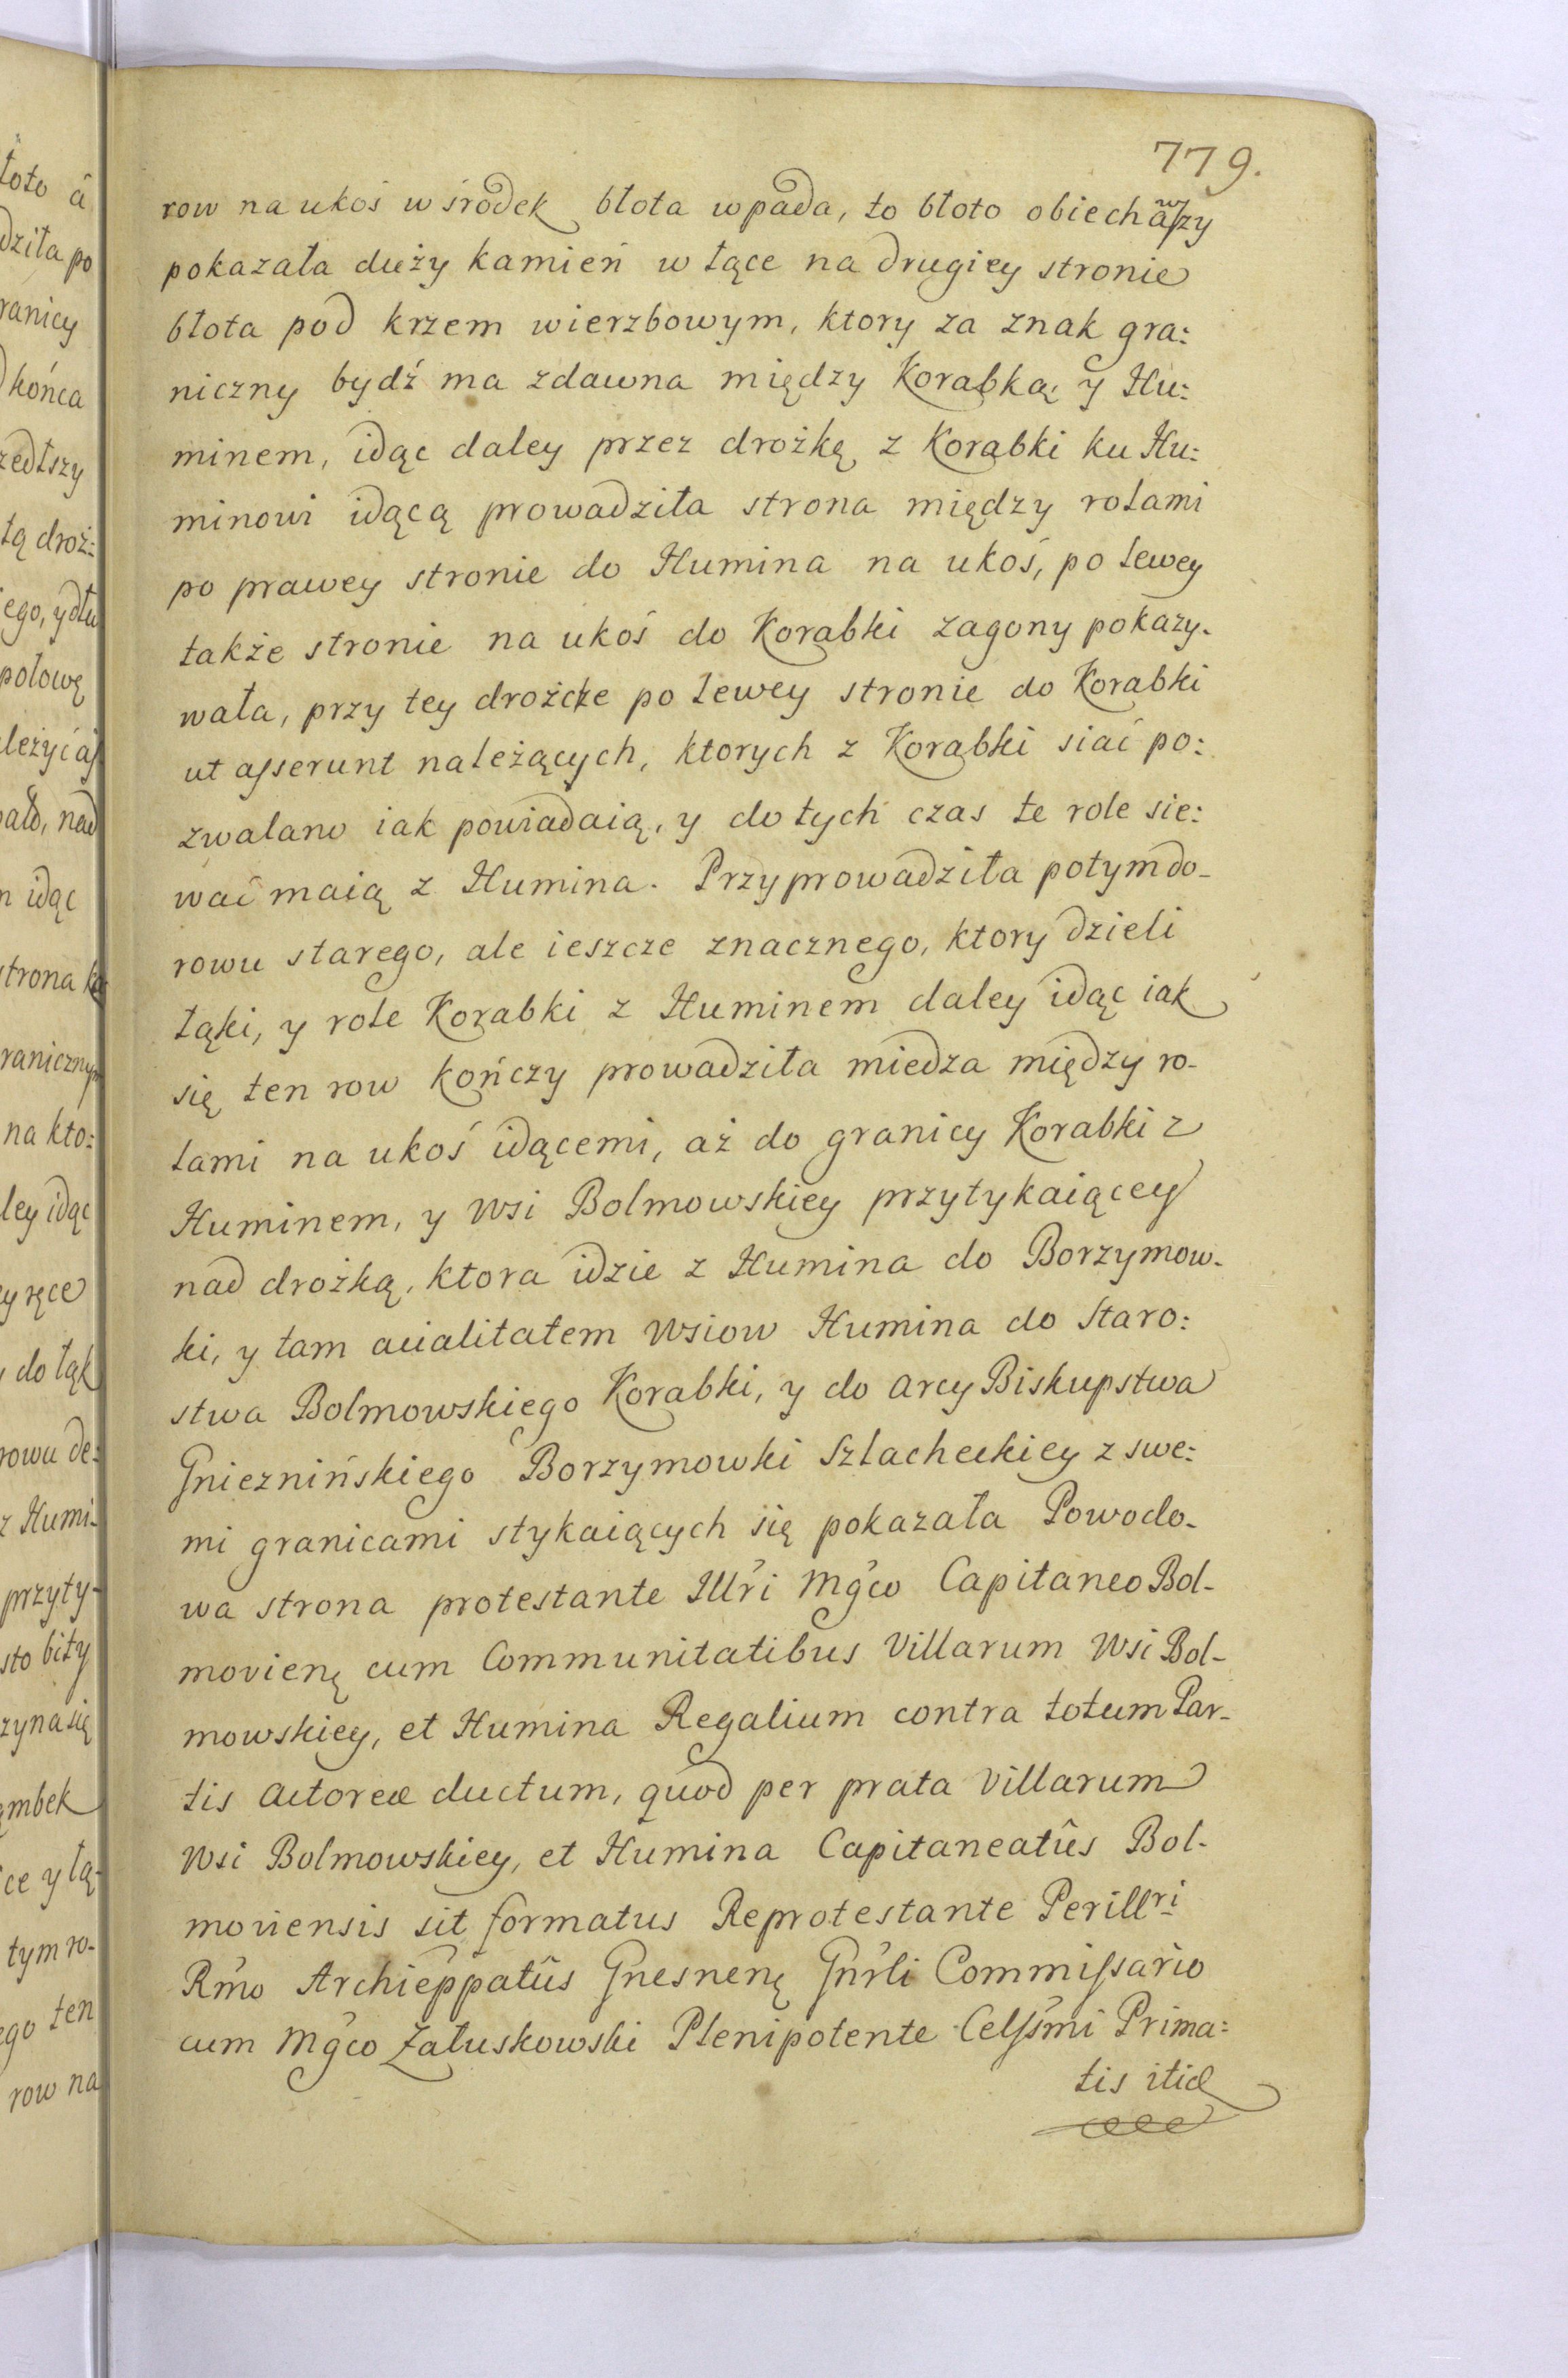 779.
row na ukoś w środek błota wpada, to błoto obiechawszy
pokazała duży kamień w łące na drugiey stronie
błota pod krzem wierzbowym, ktory za znak gra:
niczny bydź ma zdawna między Korabką y Hu:
minem, idąc daley przez drożkę z Korabki ku Hu:
minowi idącą prowadziła strona między rolami
po prawey stronie do Humina na ukoś, po lewey
także stronie na ukoś do Korabki zagony pokazy-
wała, przy tey drożcze po lewey stronie do Korabki
ut asserunt należących, ktorych z Korabki siać po:
zwalano iak powiadaią, y do tych czas te role sie:
wać maią z Humina. Przyprowadziła potym do-
rowu starego, ale ieszcze znacznego, ktory dzieli
łąki, y role Korabki z Huminem daley idąc iak
się ten row kończy prowadziła miedza między ro-
lami na ukoś idącemi, aż do granicy Korabki z
Huminem, y Wsi Bolmowskiey przytykaiącey
nad drożką, ktora idzie z Humina do Borzymow-
ki, y tam acialitatem Wsiow Humina do Staro:
stwa Bolmowskiego Korabki, y do Arcy Biskupstwa
Gnieznińskiego Borzymowki Szlacheckiey z swe:
mi granicami stykaiących się pokazała Powodo-
wa strona protestante Illri Mgco Capitaneo Bol-
movienę cum Communitatibus Villarum Wsi Bol-
mowskiey, et Humina Regalium contra totum Par-
tis Actoreæ ductum, quod per prata Villarum
Wsi Bolmowskiey, et Humina Capitaneatûs Bol-
moviensis sit formatus Reprotestante Perillri
Rmo Archieppatûs Gnesnenę Gnrli Commissario
cum Mgco Załuskowski Plenipotente Celssmi Prima:
tis itid